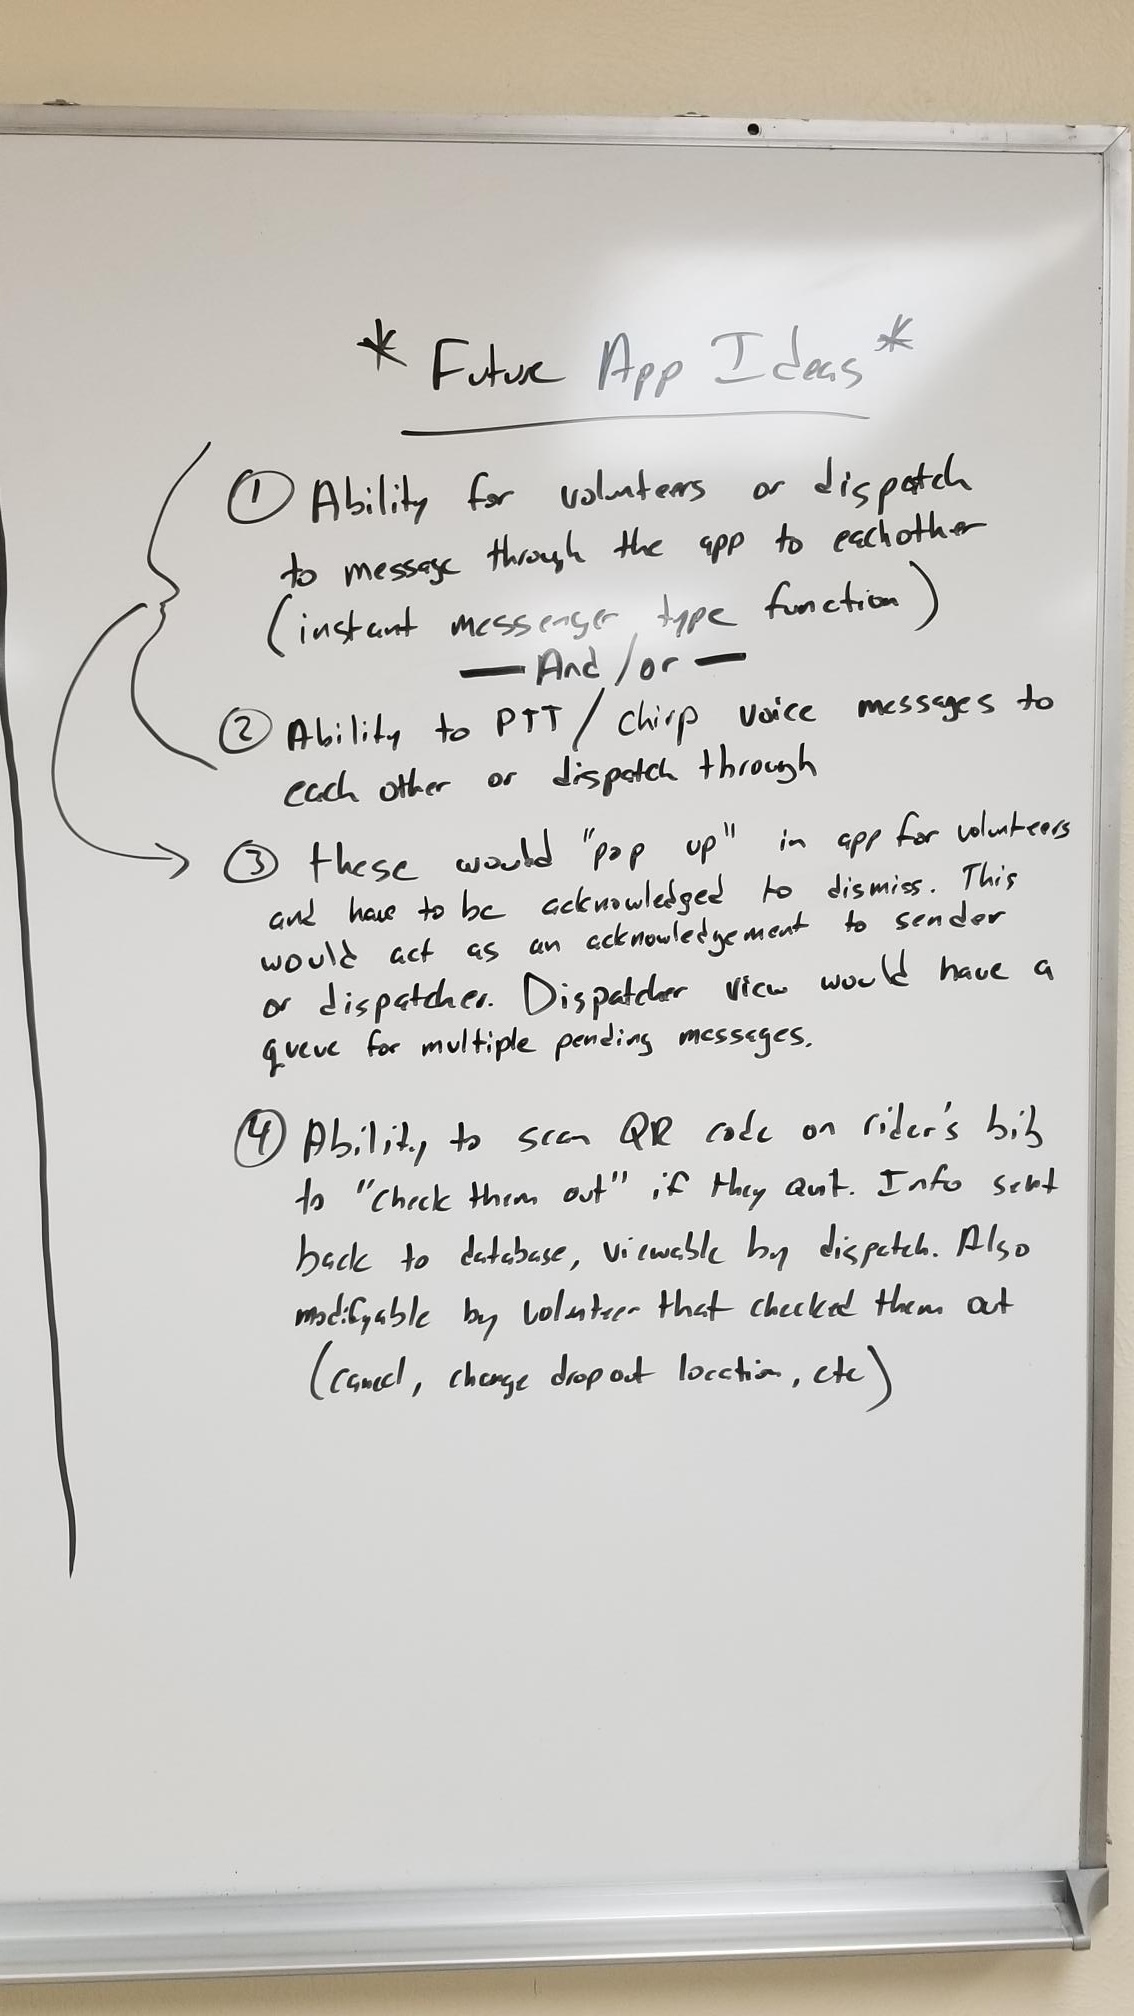 * Future App Ideas *
① Ability for volunteers or dispatch
to message through the app to eachother
(instant messenger type function)
— And/or —
② Ability to PTT / chirp voice messages to
each other or dispatch through
③ these would "pop up" in app for volunteers
and have to be acknowledged to dismiss. This
would act as an acknowledgement to sender
or dispatcher. Dispatcher view would have a
queue for multiple pending messages.
④ Ability to scan QR code on rider's bib
to "check them out" if they quit. Info sent
back to database, viewable by dispatch. Also
modifyable by volunteer that checked them out
(cancel, change drop out location, etc)